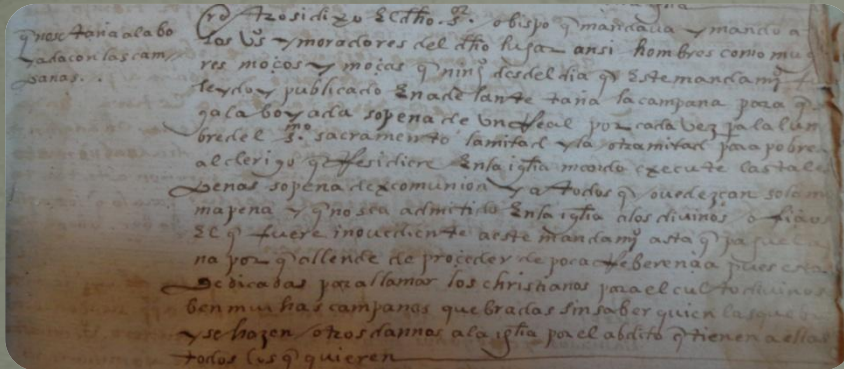 q no se taña a la bo
yada con las cam
panas.
Otrosi dixo El dho sr obispo q mandava y mando a
los vos y moradores del dho lugar ansi hombres como mug
res moços y moças q ningo desdel dia q Este mandamo
leydo y publicado En adelante taña la campana para q
ga la boyada so pena de un Real por cada vez pa la lum
bre del smo sacramento la mitad y la otra mitad para pobre
al clerigo q Residiere En la iglia mando execute las tales
penas so pena de excomunion y a todos q ovedezcan so la m
ma pena y q no sea admitido En la iglia a los divinos ofiçios
El q fuere inovediente a este mandamo asta q pague la
na por q allende de proceder de poca Reberençia pues estan
dedicadas para llamar los christianos para el culto divino s
ben muchas campanas quebradas sin saber quien las que
y se hazen otros dannos a la iglia por el abdito q tienen a ellas
todos los q quieren